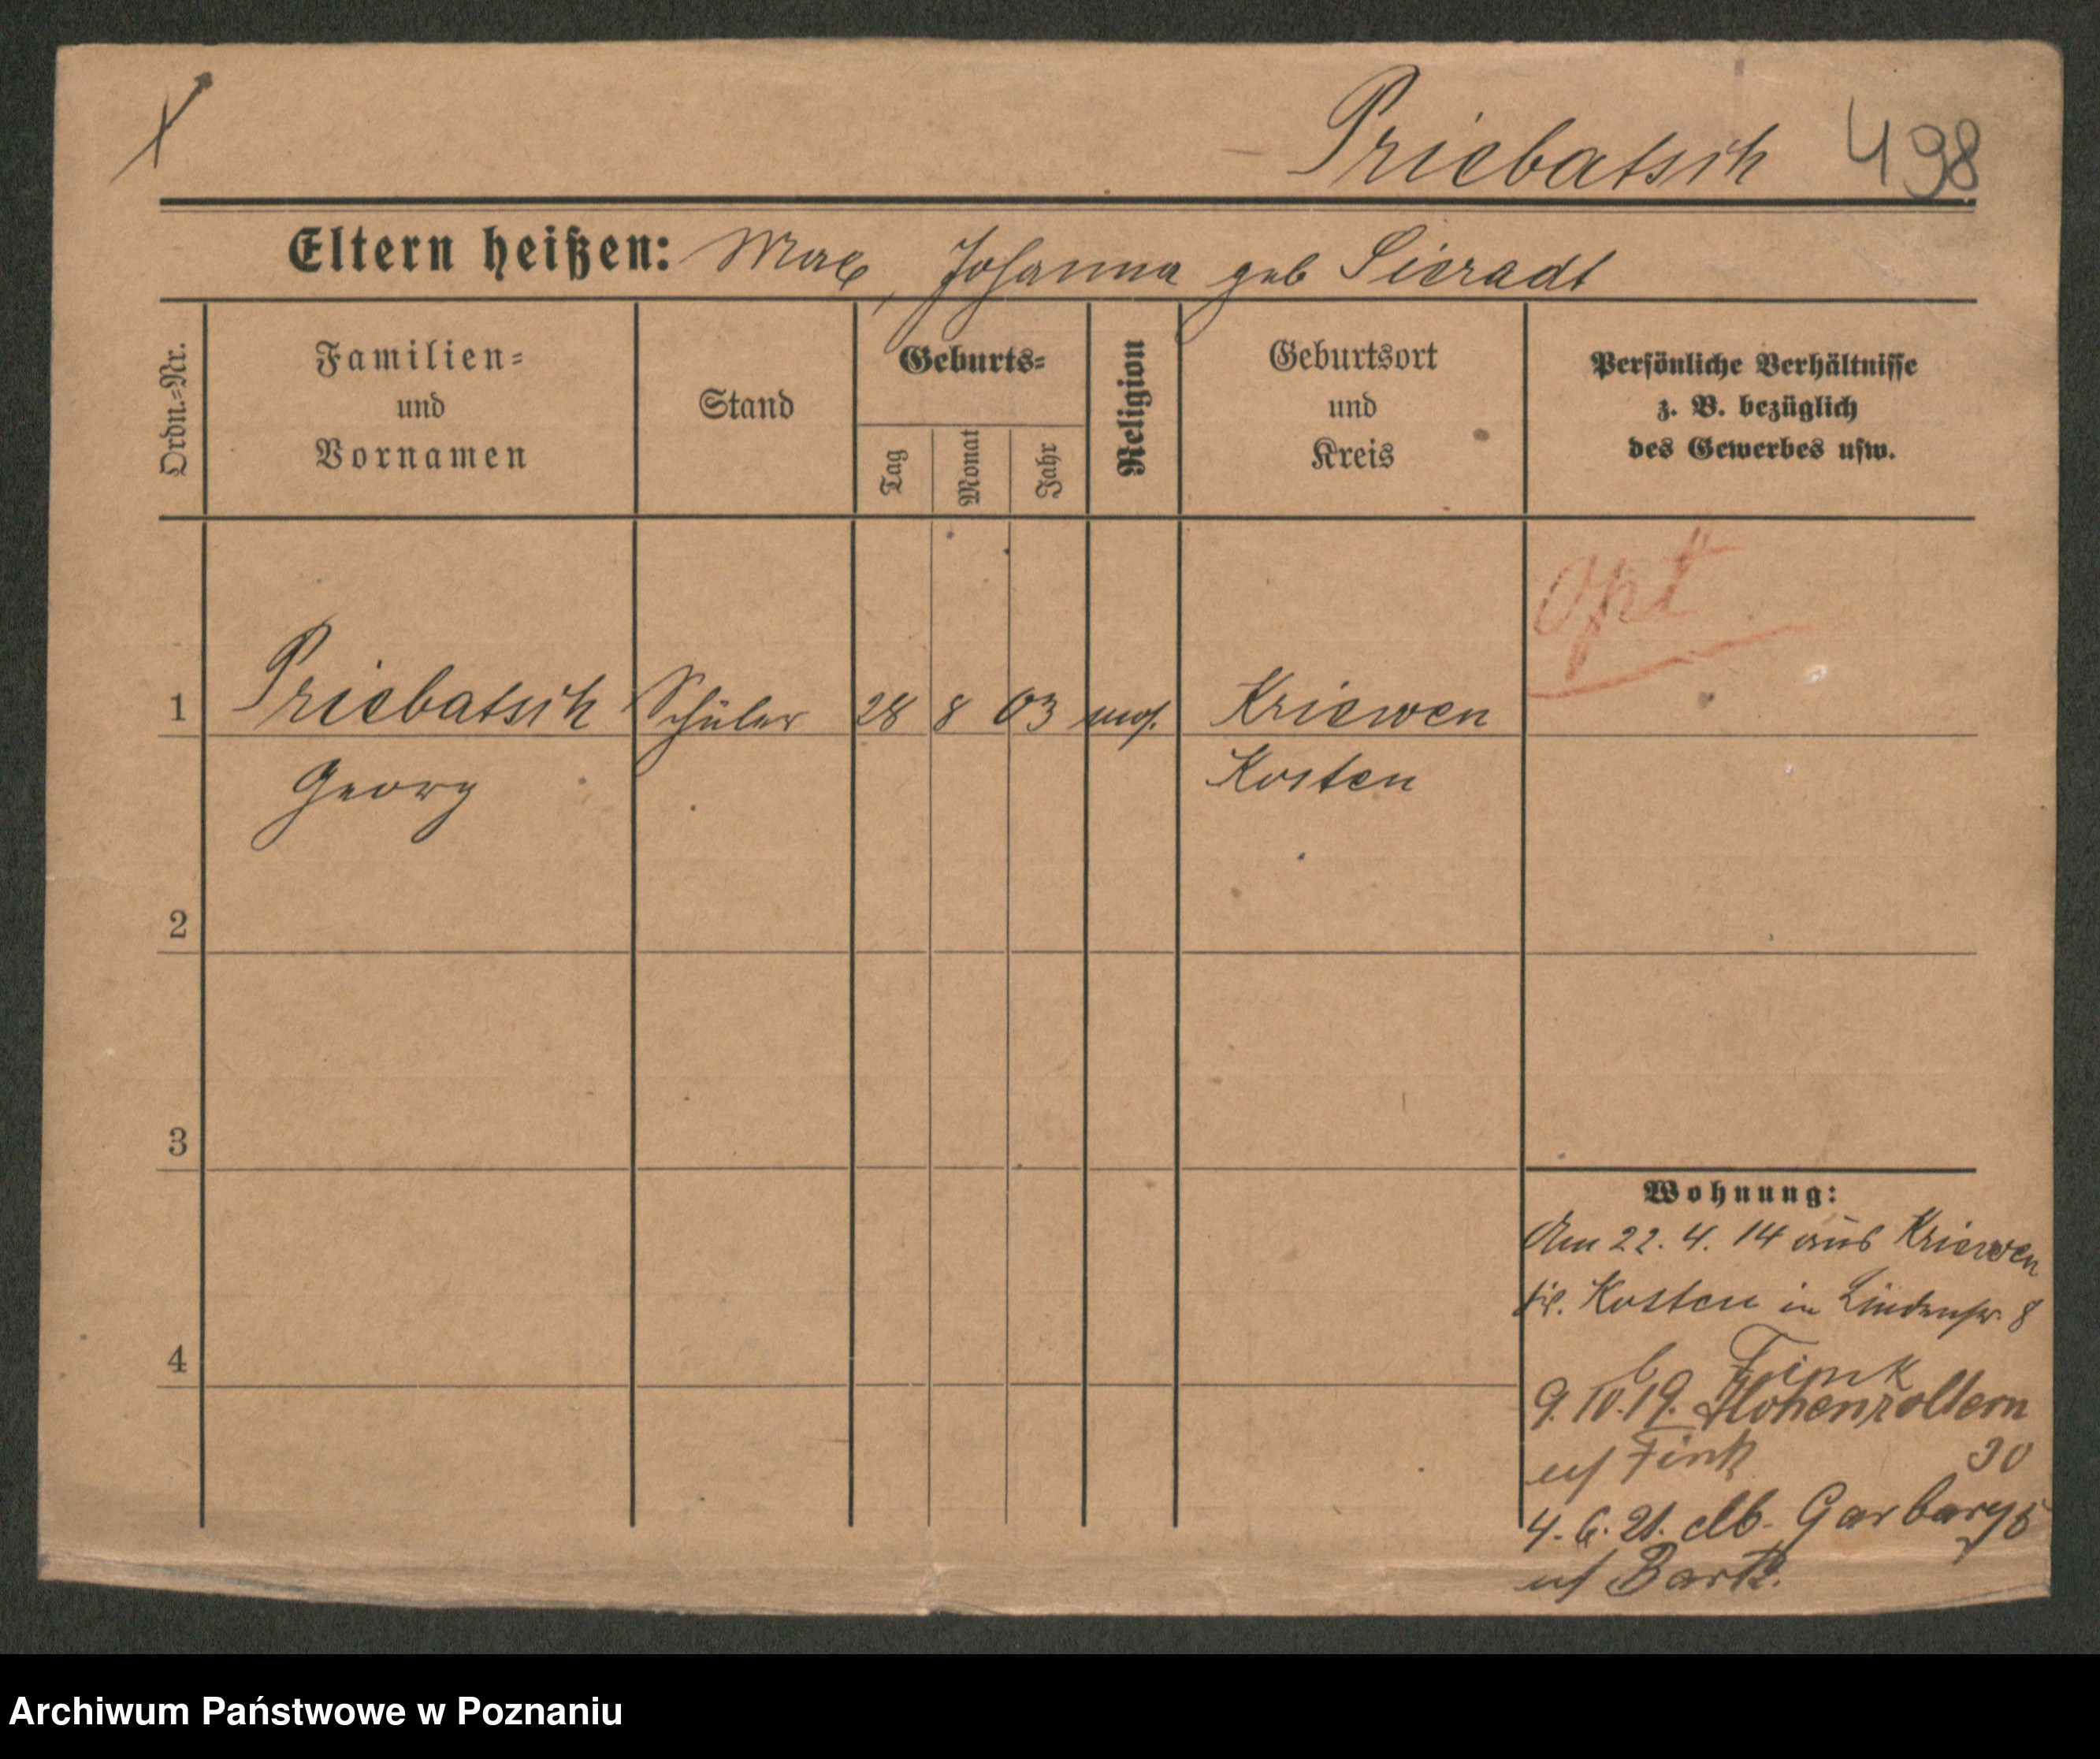 Priebatsch 498
Eltern heißen: Max, Johanna geb Sieradt
Ordn.=Nr.
Familien=
und
Vornamen
Stand
Geburts=
Tag
Monat
Jahr
Religion
Geburtsort
und
Kreis
Persönliche Verhältnisse
z. B. bezüglich
des Gewerbes usw.
Opt
1 Priebatsch Schüler 28 8 03 mos. Kriewen
Georg Kosten
2
3
4
Wohnung:
Am 22. 4. 14 aus Kriewen
Kosten in Lindenstr. 8
b Fink
9. IV. 19. Hohenzollern
Fink 30
4. 6. 21. Garbary
Archiwum Państwowe w Poznaniu